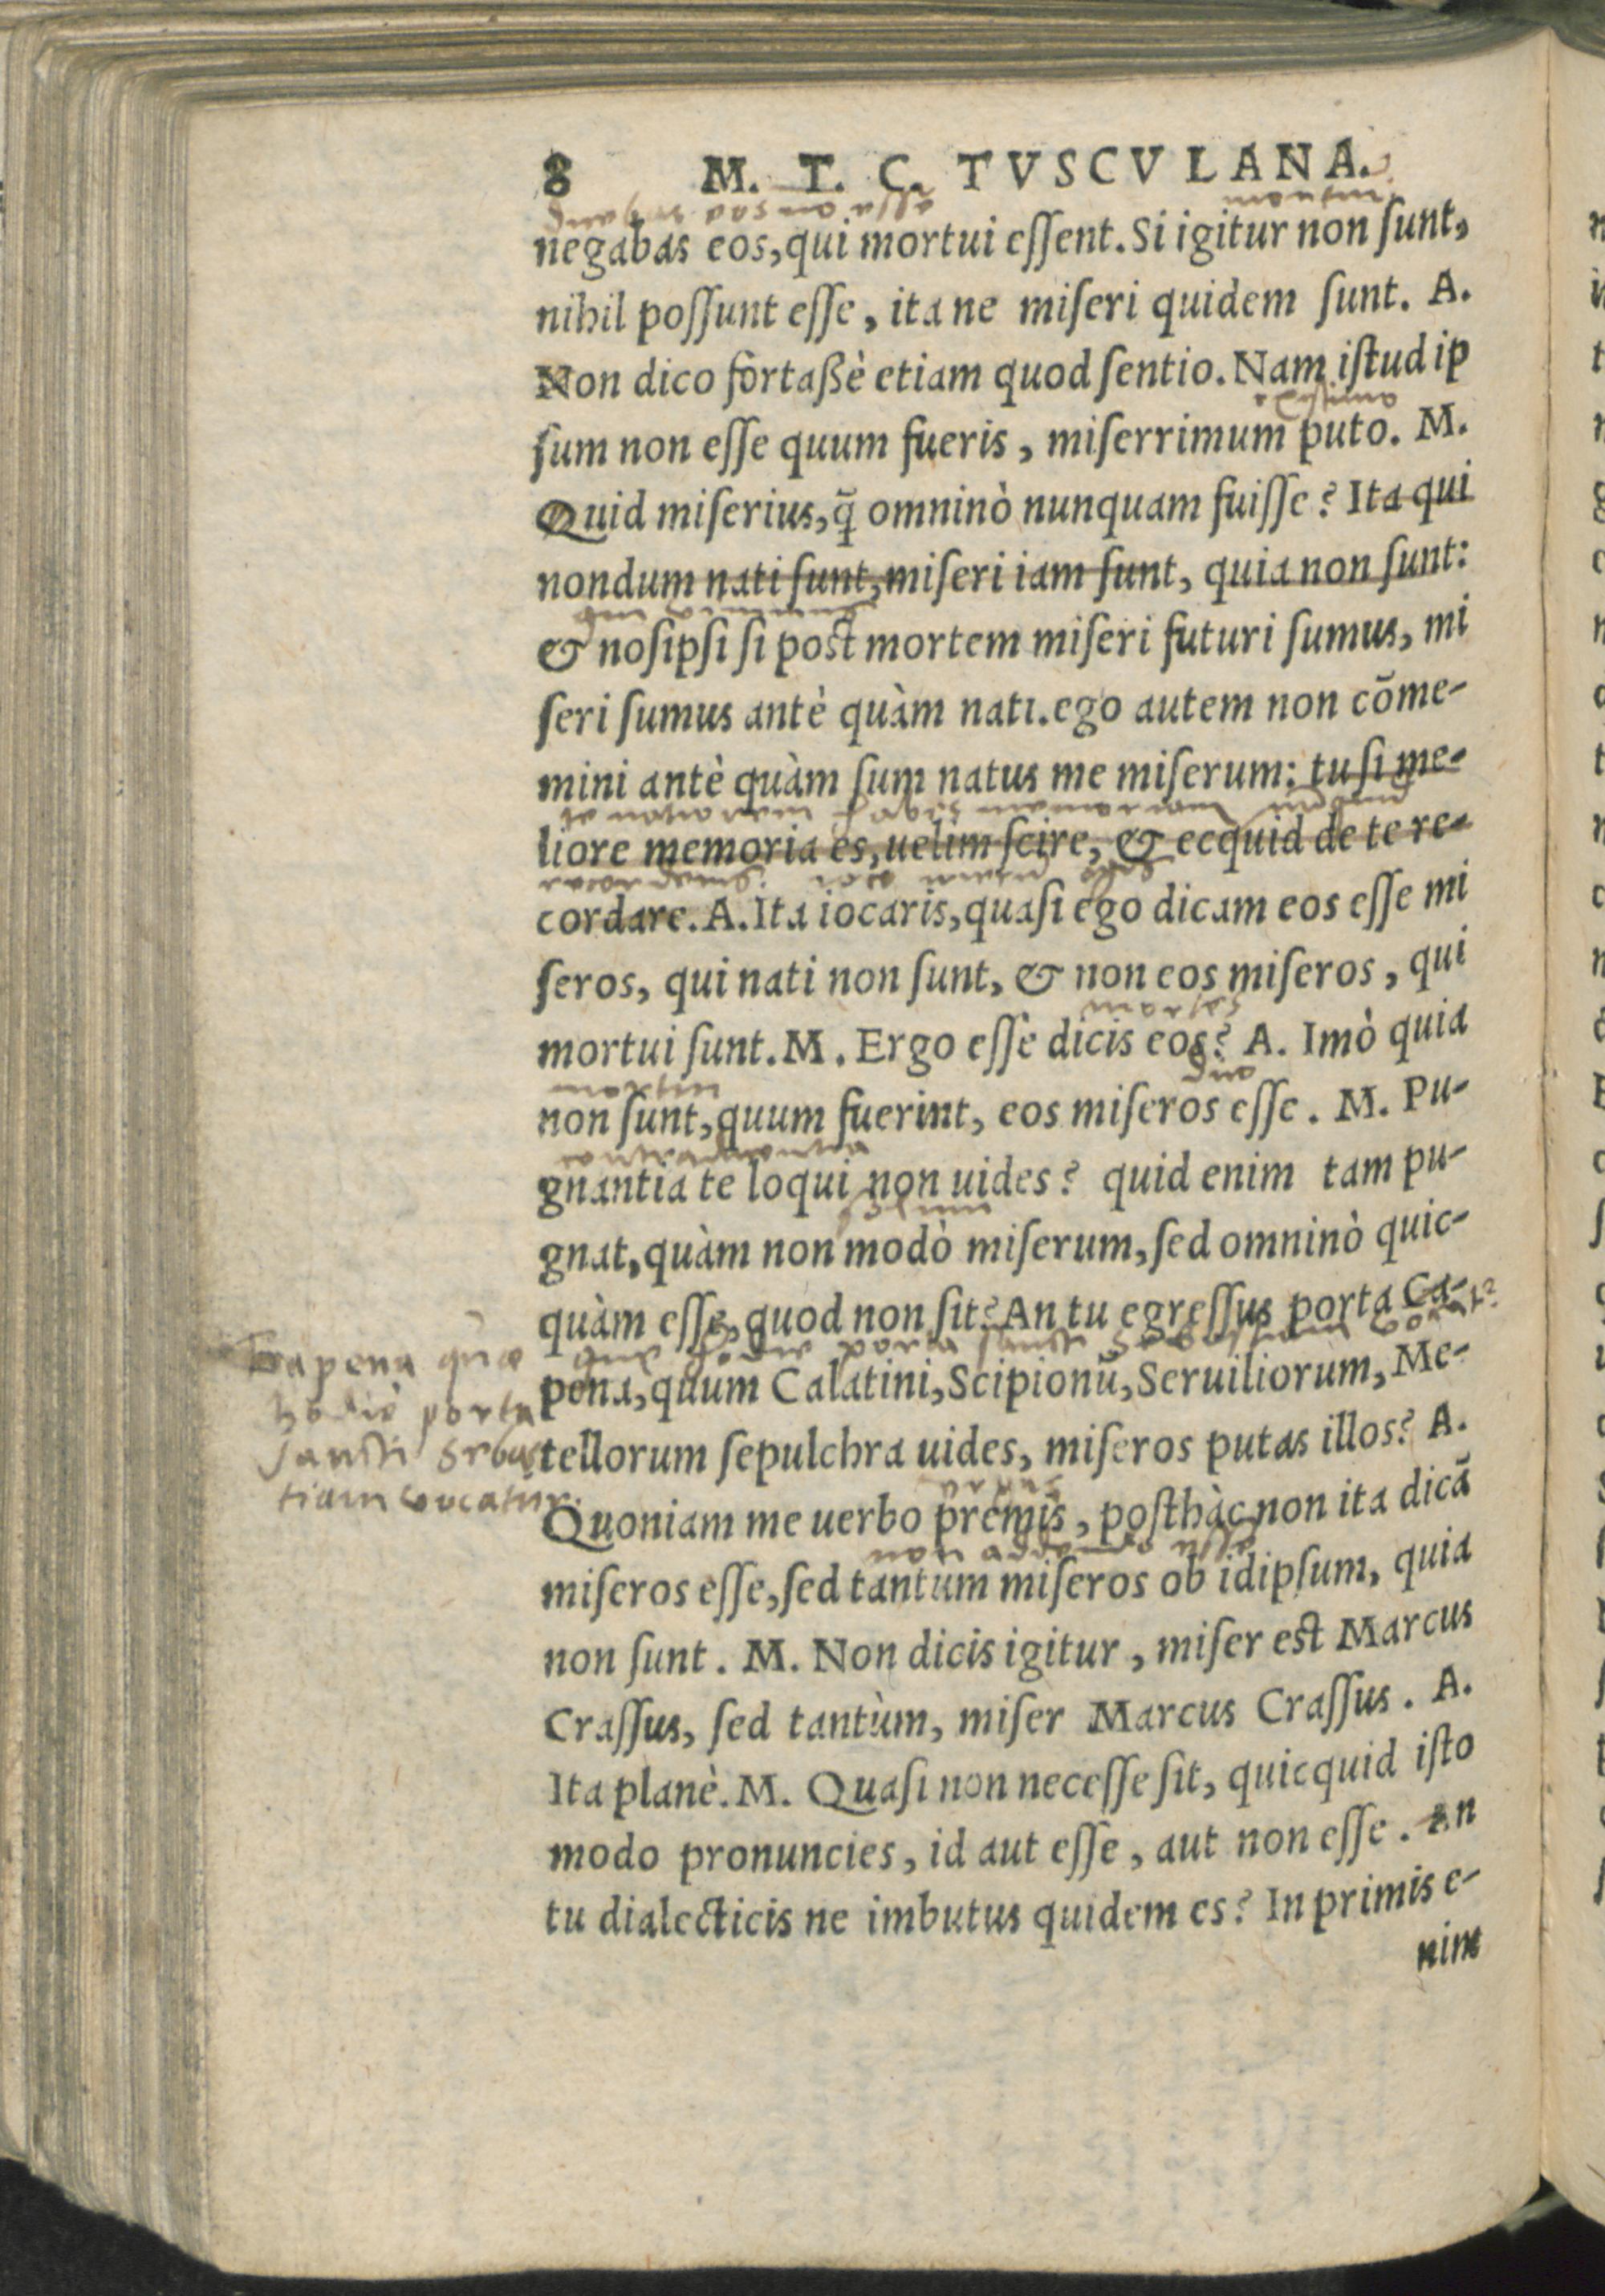 8 M. T. C. TVSCVLANA.
negabas eos, qui mortui eſſent. Si igitur non ſunt,
nihil poſſunt eſſe, ita ne miſeri quidem ſunt. A.
Non dico fortaßè etiam quod ſentio. Nam iſtud ip
ſum non eſſe quum fueris, miſerrimum puto. M.
Quid miſerius, q̃ omninò nunquam fuiſſe? Ita qui
nondum nati ſunt, miſeri iam ſunt, quia non ſunt:
& noſipſi ſi poſt mortem miſeri futuri ſumus, mi
ſeri ſumus antè quàm nati. ego autem non cõme-
mini antè quàm ſum natus me miſerum: tu ſi me-
liore memoria es, uelim ſcire, & ecquid de te re-
cordare. A. Ita iocaris, quaſi ego dicam eos eſſe mi
ſeros, qui nati non ſunt, & non eos miſeros, qui
mortui ſunt. M. Ergo eſſe dicis eos? A. Imò quia
non ſunt, quum fuerint, eos miſeros eſſe. M. Pu-
gnantia te loqui non uides? quid enim tam pu-
gnat, quàm non modò miſerum, ſed omninò quic-
quàm eſſe, quod non ſit? An tu egreſſus porta Ca-
pena, quum Calatini, Scipionũ, Seruiliorum, Me-
tellorum ſepulchra uides, miſeros putas illos? A.
Quoniam me uerbo premis, poſthàc non ita dicã
miſeros eſſe, ſed tantum miſeros ob idipſum, quia
non ſunt. M. Non dicis igitur, miſer eſt Marcus
Craſſus, ſed tantùm, miſer Marcus Craſſus. A.
Ita planè. M. Quaſi non neceſſe ſit, quicquid iſto
modo pronuncies, id aut eſſe, aut non eſſe. an
tu dialecticis ne imbutus quidem es? In primis e-
nim
Capena quæ
hodiè porta
sancti
vocatur